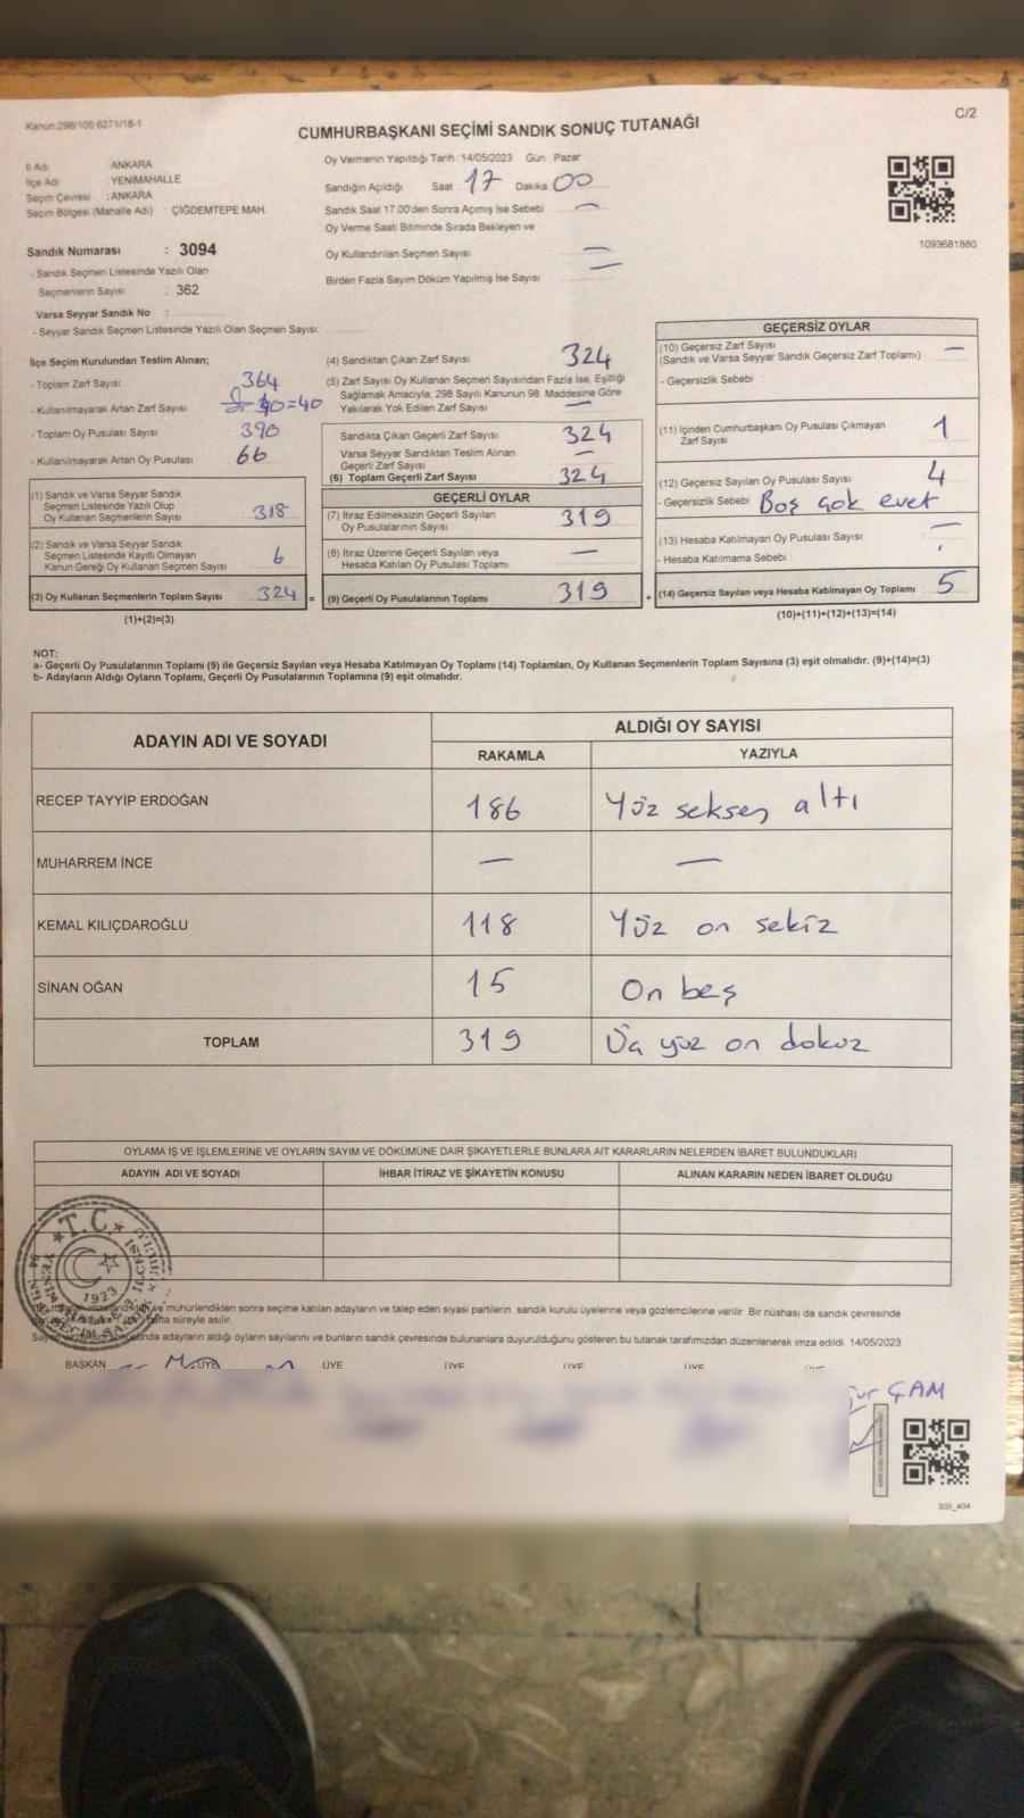 Kanun:298/105 6271/18-1
C/2
CUMHURBAŞKANI SEÇİMİ SANDIK SONUÇ TUTANAĞI
İl Adı ANKARA
İlçe Adı YENİMAHALLE
Seçim Çevresi : ANKARA
Seçim Bölgesi (Mahalle Adı) ÇİĞDEMTEPE MAH.
Oy Vermenin Yapıldığı Tarih: 14/05/2023 Gün: Pazar
Sandığın Açıldığı Saat 17 Dakika 00
Sandık Saat 17.00'den Sonra Açılmış İse Sebebi —
Oy Verme Saati Bitiminde Sırada Bekleyen ve
Oy Kullandırılan Seçmen Sayısı —
Birden Fazla Sayım Döküm Yapılmış İse Sayısı —
1093681880
Sandık Numarası : 3094
- Sandık Seçmen Listesinde Yazılı Olan
Seçmenlerin Sayısı : 362
Varsa Seyyar Sandık No :
- Seyyar Sandık Seçmen Listesinde Yazılı Olan Seçmen Sayısı:
İlçe Seçim Kurulundan Teslim Alınan;
- Toplam Zarf Sayısı 364
- Kullanılmayarak Artan Zarf Sayısı 40=40
- Toplam Oy Pusulası Sayısı 390
- Kullanılmayarak Artan Oy Pusulası 66
(1) Sandık ve Varsa Seyyar Sandık
Seçmen Listesinde Yazılı Olup
Oy Kullanan Seçmenlerin Sayısı 318
(2) Sandık ve Varsa Seyyar Sandık
Seçmen Listesinde Kayıtlı Olmayan
Kanun Gereği Oy Kullanan Seçmen Sayısı 6
(3) Oy Kullanan Seçmenlerin Toplam Sayısı 324 =
(1)+(2)=(3)
(4) Sandıktan Çıkan Zarf Sayısı 324
(5) Zarf Sayısı Oy Kullanan Seçmen Sayısından Fazla İse, Eşitliği
Sağlamak Amacıyla, 298 Sayılı Kanunun 98. Maddesine Göre
Yakılarak Yok Edilen Zarf Sayısı —
Sandıkta Çıkan Geçerli Zarf Sayısı 324
Varsa Seyyar Sandıktan Teslim Alınan
Geçerli Zarf Sayısı —
(6) Toplam Geçerli Zarf Sayısı 324
GEÇERLİ OYLAR
(7) İtiraz Edilmeksizin Geçerli Sayılan
Oy Pusulalarının Sayısı 319
(8) İtiraz Üzerine Geçerli Sayılan veya
Hesaba Katılan Oy Pusulası Toplamı —
(9) Geçerli Oy Pusulalarının Toplamı 319 +
GEÇERSİZ OYLAR
(10) Geçersiz Zarf Sayısı —
(Sandık ve Varsa Seyyar Sandık Geçersiz Zarf Toplamı)
- Geçersizlik Sebebi :
(11) İçinden Cumhurbaşkanı Oy Pusulası Çıkmayan
Zarf Sayısı 1
(12) Geçersiz Sayılan Oy Pusulası Sayısı 4
- Geçersizlik Sebebi Boş çok evet
(13) Hesaba Katılmayan Oy Pusulası Sayısı —
- Hesaba Katılmama Sebebi
(14) Geçersiz Sayılan veya Hesaba Katılmayan Oy Toplamı 5
(10)+(11)+(12)+(13)=(14)
NOT:
a- Geçerli Oy Pusulalarının Toplamı (9) ile Geçersiz Sayılan veya Hesaba Katılmayan Oy Toplamı (14) Toplamları, Oy Kullanan Seçmenlerin Toplam Sayısına (3) eşit olmalıdır. (9)+(14)=(3)
b- Adayların Aldığı Oyların Toplamı, Geçerli Oy Pusulalarının Toplamına (9) eşit olmalıdır.
ADAYIN ADI VE SOYADI
ALDIĞI OY SAYISI
RAKAMLA YAZIYLA
RECEP TAYYİP ERDOĞAN 186 Yüz seksen altı
MUHARREM İNCE — —
KEMAL KILIÇDAROĞLU 118 Yüz on sekiz
SİNAN OĞAN 15 On beş
TOPLAM 319 Üç yüz on dokuz
OYLAMA İŞ VE İŞLEMLERİNE VE OYLARIN SAYIM VE DÖKÜMÜNE DAİR ŞİKAYETLERLE BUNLARA AİT KARARLARIN NELERDEN İBARET BULUNDUKLARI
ADAYIN ADI VE SOYADI İHBAR İTİRAZ VE ŞİKAYETİN KONUSU ALINAN KARARIN NEDEN İBARET OLDUĞU
T.C.
1923
ve mühürlendikten sonra seçime katılan adayların ve talep eden siyasi partilerin sandık kurulu üyelerine veya gözlemcilerine verilir. Bir nüshası da sandık çevresinde
hafta süreyle asılır.
adayların aldığı oyların sayılarını ve bunların sandık çevresinde bulunanlara duyurulduğunu gösteren bu tutanak tarafımızdan düzenlenerek imza edildi. 14/05/2023
BAŞKAN ÜYE ÜYE ÜYE ÜYE ÜYE
ÇAM